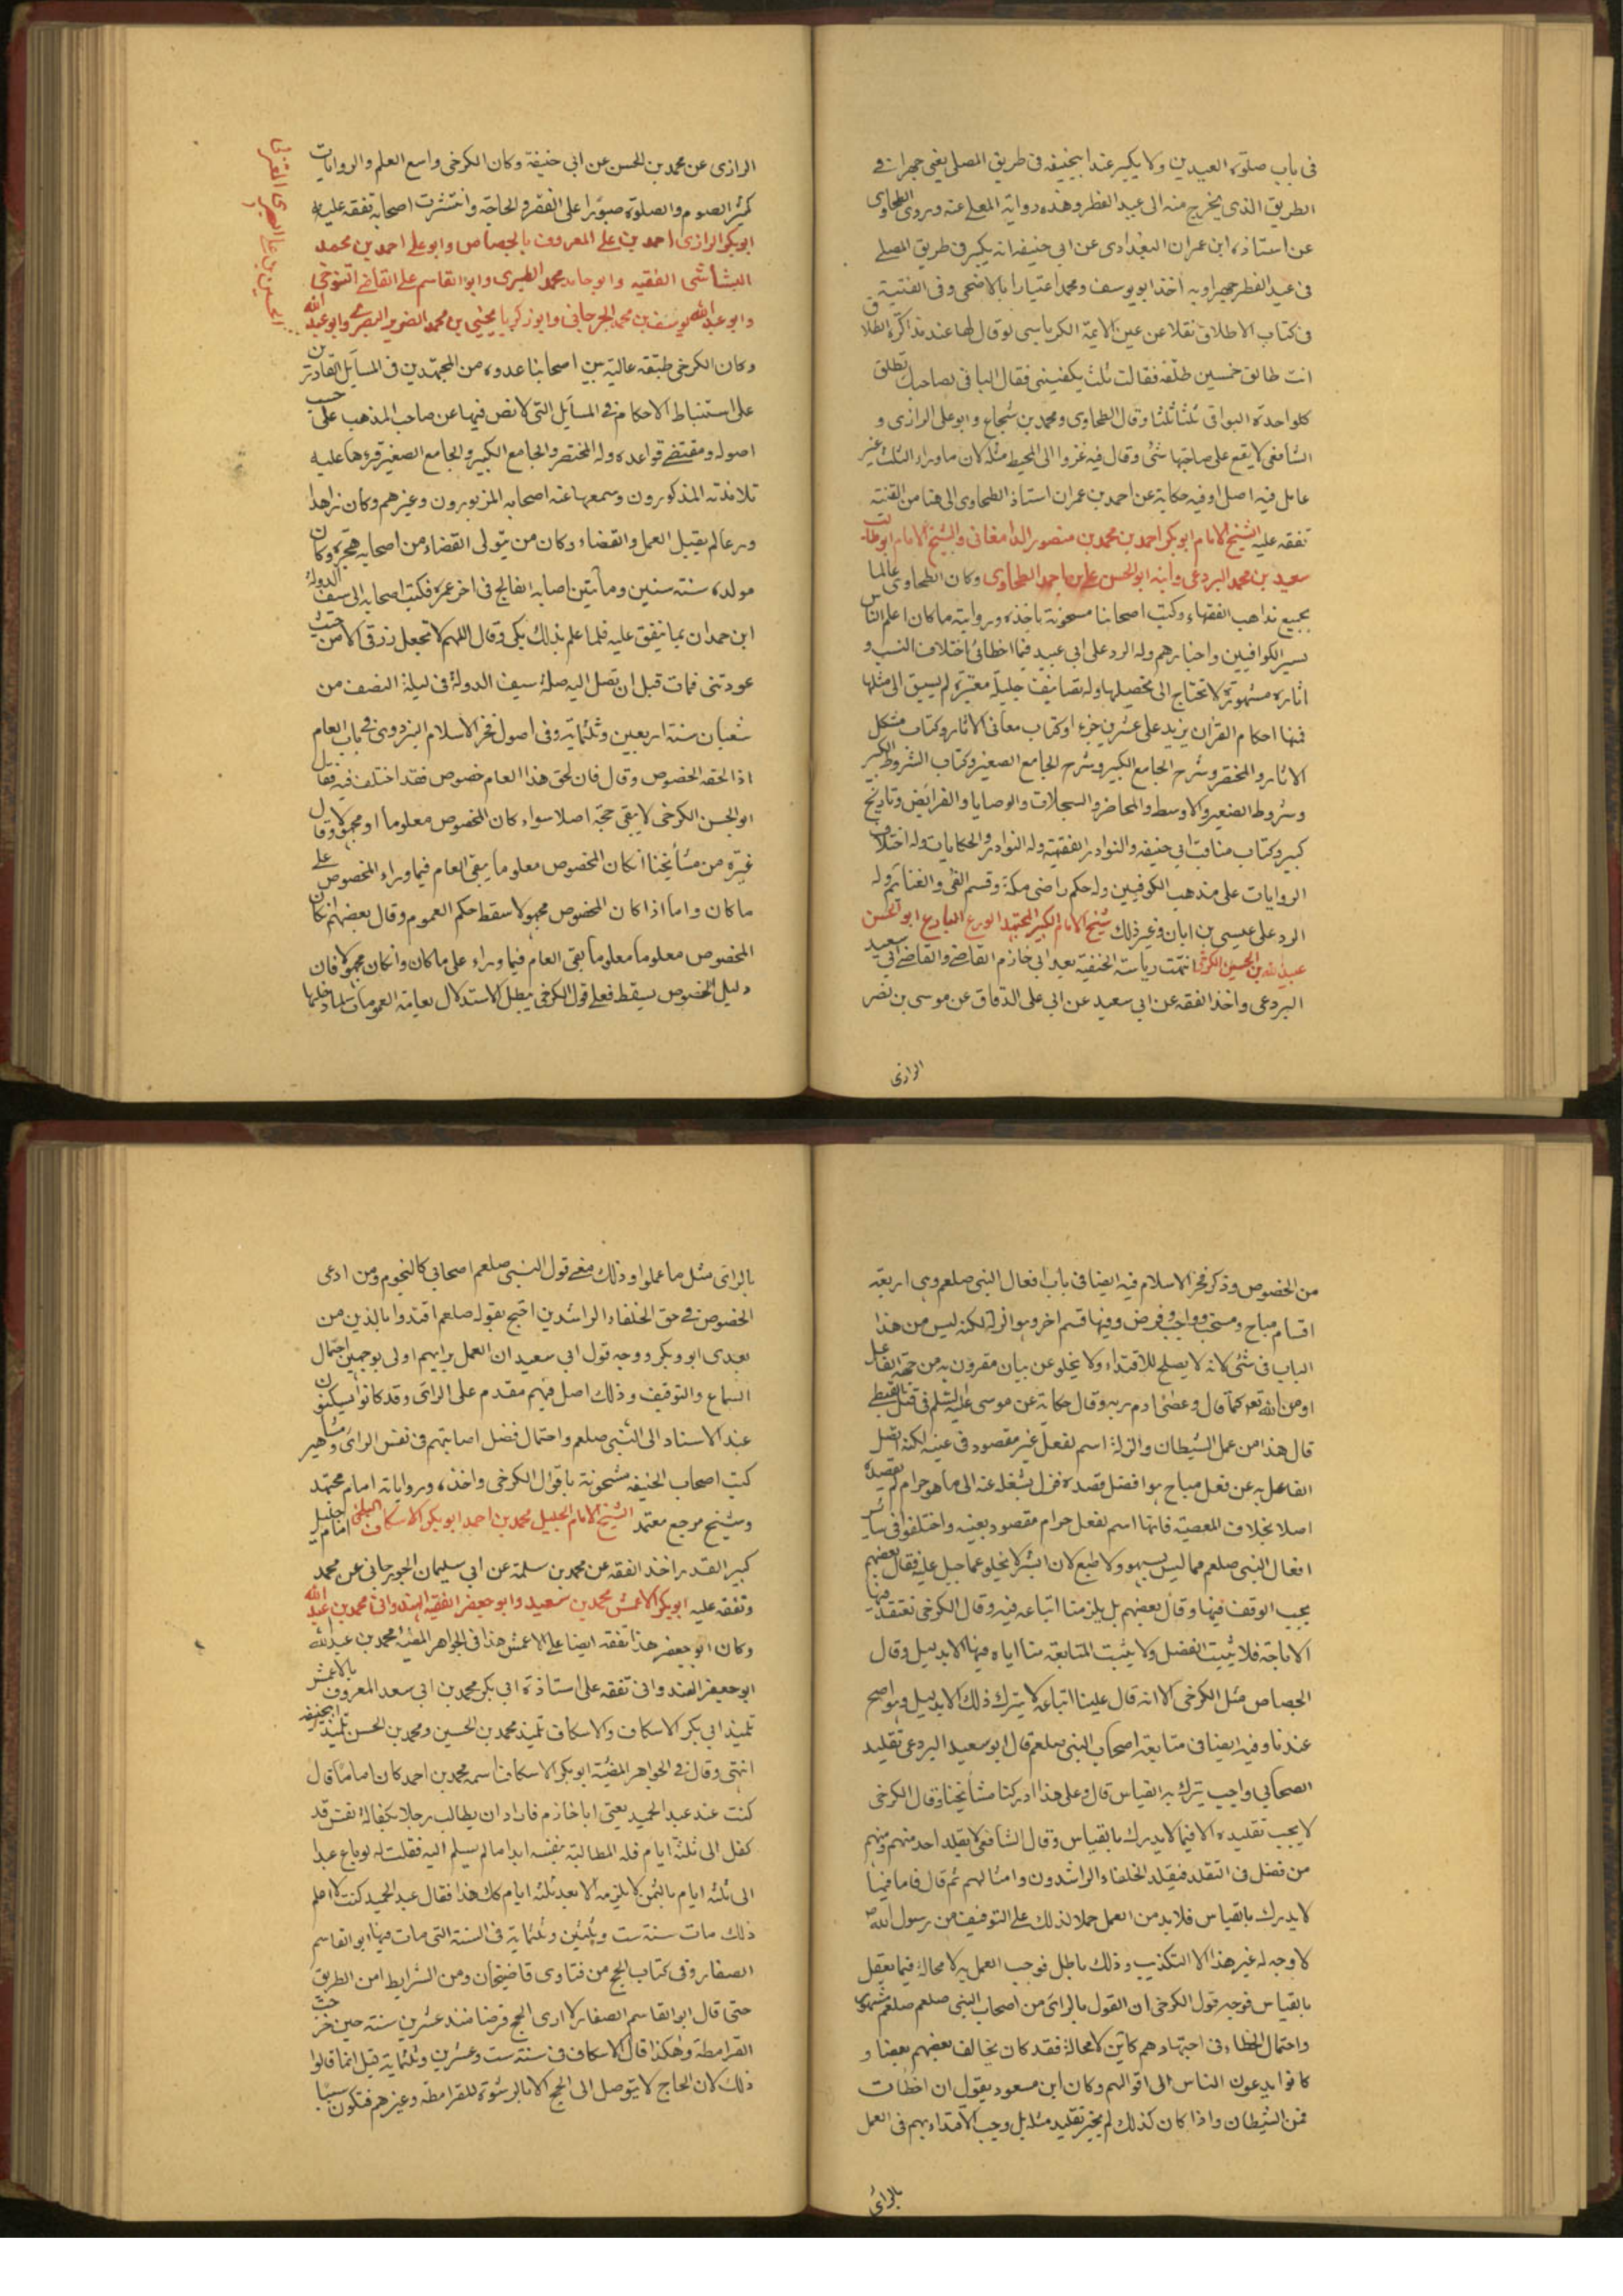 فى باب صلوة العيدين ولا يكبر عند ابيحنيفه فى طريق المصلى يعنى جهرا فى
الطريق الذى يخرج منه الى عيد الفطر وهذه رواية المعلى عنه وروى الطحاوى
عن استاذه ابن عمران البغدادى عن ابى حنيفه انه يكبر فى طريق المصلى
فى عيد الفطر جهرا وبه اخذ ابو يوسف ومحمد اعتبارا بالاضحى وفى القنية
فى كتاب الاطلاق نقلا عن عين الايمة الكرباسى لو قال لها عند مذاكرة الطلاق
انت طالق خمسين طلقة فقالت ثلث يكفينى فقال البافى لصاحبك تطلق
كل واحدة البواقى ثلثا ثلثا وقال الطحاوى ومحمد بن شجاع وابو على الرازى و
الشافعى لا يقع على صاحبتها شئ وقال فيه غزوا الى المحيط مثله لان ما وراء الثلث غير
عامل فيه اصلا وفيه حكاية عن احمد بن عمران استاذ الطحاوى الى هنا من القنية
تفقه عليه الشيخ الامام ابو بكر احمد بن محمد بن منصور الدامغانى والشيخ الامام ابو طالب
سعيد بن محمد البردعى وابنه ابو الحسن على بن احمد الطحاوى وكان الطحاوى عالما
بجميع مذاهب الفقهاء وكتب اصحابنا مسحونة باخذه وروايته ما كان اعلم الناس
بسير الكوافيين واخبارهم وله الرد على ابى عبيد فيما اخطأ فى اختلاف النسب و
اثاره مشهورة لا تحتاج الى تحصيلها وله تصانيف جليلة معتبرة لم يسبق الى مثلها
فمنها احكام القران يزيد على عشرين جزءا وكتاب معانى الاثار وكتاب مشكل
الاثار والمختصر وشرح الجامع الكبير وشرح الجامع الصغير وكتاب الشروط الكبير
وشروط الصغير والاوسط والمحاضر والسجلات والوصايا والفرائض وتاريخ
كبير وكتاب مناقب ابى حنيفه والنوادر الفقهية وله النوادر والحكايات وله اختلاف
الروايات على مذهب الكوفيين وله حكم راضى مكة وقسم الفئ والغنائم وله
الرد على عيسى بن ابان وغير ذلك شيخ الامام الكبير المجتهد الورع البارع ابو الحسن
عبيد الله بن الحسين الكرخى انتهت رياسة الحنفية بعد ابى خازم القاضى والقاضى ابى سعيد
البردعى واخذ الفقه عن ابى سعيد عن ابى على الدقاق عن موسى بن نصر
الرازى
الرازى عن محمد بن الحسن عن ابى حنيفة وكان الكرخى واسع العلم والروايات
كثير الصوم والصلوة صبورا على الفقر والحاجة وانتشرت اصحابه تفقه عليه
ابو بكر الرازى احمد بن على المعروف بالجصاص وابو على احمد بن محمد
الشاشى الفقيه وابو حامد محمد الطبرى وابو القاسم على القاضى التنوخى
وابو عبد الله يوسف بن محمد الجرجانى وابو زكريا يحيى بن محمد الضرير البصرى وابو عبد الله
الحسين بن على البصرى المعتزلى
وكان الكرخى طبقته عالية بين اصحابنا عدوه من المجتهدين فى المسايل القادرين
على استنباط الاحكام فى المسايل التى لا نص فيها عن صاحب المذهب على حسب
اصوله ومقتضى قواعده وله المختصر والجامع الكبير والجامع الصغير قرءها عليه
تلامذته المذكورون وسمعها عنه اصحابه المزبورون وغيرهم وكان زاهدا
ورعا لم يقبل العمل والقضاء وكان من يتولى القضاء من اصحابه هجره وكان
مولده سنة ستين ومأتين اصابه الفالج فى اخر عمره فكتب اصحابه الى سيف الدولة
ابن حمدان بما ينفق عليه فلما علم بذلك بكى وقال اللهم لا تجعل رزقى الا من حيث
عودتنى فمات قبل ان تصل اليه صلة سيف الدولة فى ليلة النصف من
شعبان سنة اربعين وثلثماية وفى اصول فخر الاسلام البزدوى فى باب العام
اذا لحقه الخصوص وقال فان لحق هذا العام خصوص فقد اختلف فيه فقال
ابو الحسن الكرخى لا يبقى حجة اصلا سواء كان المخصوص معلوما او مجهولا وقال
غيره من مشايخنا ان كان المخصوص معلوما يبقى العام فيما وراء المخصوص على
ما كان واما اذا كان المخصوص مجهولا سقط حكم العموم وقال بعضهم ان كان
المخصوص معلوما معلوما بقى العام فيما وراء على ما كان وان كان مجهولا فان
دليل الخصوص يسقط فعلى قول الكرخى يبطل الاستدلال بعامة العمومات لما دخلها
من الخصوص وذكر فخر الاسلام فيه ايضا فى باب افعال النبى صلعم وهى اربعة
اقسام مباح ومستحب وواجب وفرض وفيها قسم اخر وهو الزلة لكنه ليس من هذا
الباب فى شئ لانه لا يصلح للاقتداء ولا يخلو عن بيان مقرون به من جهة الفاعل
او من الله تعو كما قال وعصى ادم ربه وقال حكاية عن موسى عليه السلم فى قتل القبطى
قال هذا من عمل الشيطان والزلة اسم لفعل غير مقصود فى عينه لكنه اتصل
الفاعل به عن فعل مباح هو افضل قصده فزل بشغله عنه الى ما هو حرام لم يقصده
اصلا بخلاف المعصية فانها اسم لفعل حرام مقصود بعينه واختلفوا فى ساير
افعال النبى صلعم مما ليس بسهو ولا طبع لان البشر لا يخلو عما جبل عليه فقال بعضهم
يجب الوقف فيها وقال بعضهم بل يلزمنا اتباعه فيه وقال الكرخى نعتقد فيها
الاباحة فلا يثبت الفضل ولا يثبت المتابعة منا اياه فيها الا بدليل وقال
الجصاص مثل الكرخى الا انه قال علينا اتباعه لا يترك ذلك الا بدليل وهو اصح
عندنا وفيه ايضا فى متابعة اصحاب النبى صلعم قال ابو سعيد البردعى تقليد
الصحابى واجب يترك به القياس قال وعلى هذا ادركنا مشايخنا وقال الكرخى
لا يجب تقليده الا فيما لا يدرك بالقياس وقال الشافعى لا يقلد احد منهم ومنهم
من فصل فى التقليد فيقلد الخلفاء الراشدون وامثالهم ثم قال فاما فيما
لا يدرك بالقياس فلا بد من العمل حملا لذلك على التوقيف من رسول الله ص
لا وجه له غير هذا الا التكذيب وذلك باطل فوجب العمل به لا محالة فيما يعقل
بالقياس فوجه قول الكرخى ان القول بالرائ من اصحاب النبى صلعم صلعم مشهور
واحتمال الخطاء فى اجتهادهم كاين لا محالة فقد كان يخالف بعضهم بعضا و
كانوا يدعون الناس الى اقوالهم وكان ابن مسعود يقول ان اخطات
فمن الشيطان واذا كان كذلك لم يجز تقليد مثله بل وجب الاقتداء بهم فى العمل
بالرائ
بالرائ مثل ما عملوا وذلك معنى قول النبى صلعم اصحابى كالنجوم ومن ادعى
الخصوص فى حق الخلفاء الراشدين احتج بقوله صلعم اقتدوا بالذين من
بعدى ابو وبكر ووجه قول ابى سعيد ان العمل برايهم اولى بوجهين احتمال
السماع والتوقيف وذلك اصل فيهم مقدم على الرائ وقد كانوا يسكنون
عند الاسناد الى النبى صلعم واحتمال فضل اصابتهم فى نفس الرائ ومشاهير
كتب اصحاب الحنيفه مشحونة باقوال الكرخى واخذه ورواياته امام مجتهد
وشيخ مرجع معتمد الشيخ الامام الجليل محمد بن احمد ابو بكر الاسكاف البلخى امام جليل
كبير القدر اخذ الفقه عن محمد بن سلمة عن ابى سليمان الجوزجانى عن محمد
وتفقه عليه ابو بكر الاعمش محمد بن سعيد وابو جعفر الفقيه الهندوانى محمد بن عبد الله
وكان ابو جعفر هذا تفقه ايضا على الاعمش هذا فى الجواهر المضية محمد بن عبد الله
ابو جعفر الهندوانى تفقه على استاذه ابى بكر محمد بن ابى سعد المعروف بالاعمش
تلميذ ابى بكر الاسكاف والاسكاف تلميذ محمد بن الحسين ومحمد بن الحسن تلميذ ابيحنيفه
انتهى وقال فى الجواهر المضية ابو بكر الاسكاف اسمه محمد بن احمد كان اماما قال
كنت عند عبد الحميد يعنى ابا خازم فاراد ان يطالب رجلا بكفالة نفس قد
كفل الى ثلثة ايام فله المطالبة بنفسه ابدا ما لم يسلم اليه فقلت له لو باع عبدا
الى ثلثه ايام بالثمن لا يلزمه الا بعد ثلثه ايام كك هذا فقال عبد الحميد كنت لا اعلم
ذلك مات سنة ست وثلثين وثلثماية فى السنة التى مات فيها ابو القاسم
الصفار وفى كتاب الحج من فتاوى قاضيخان ومن الشرايط امن الطريق
حتى قال ابو القاسم الصفار لا ارى الحج فرضا منذ عشرين سنة حين خرجت
القرامطة وهكذا قال الاسكاف فى سنة ست وعشرين وثلثماية قيل انما قالوا
ذلك لان الحاج لا يتوصل الى الحج الا بالرشوة للقرامطة وغيرهم فتكون سببا